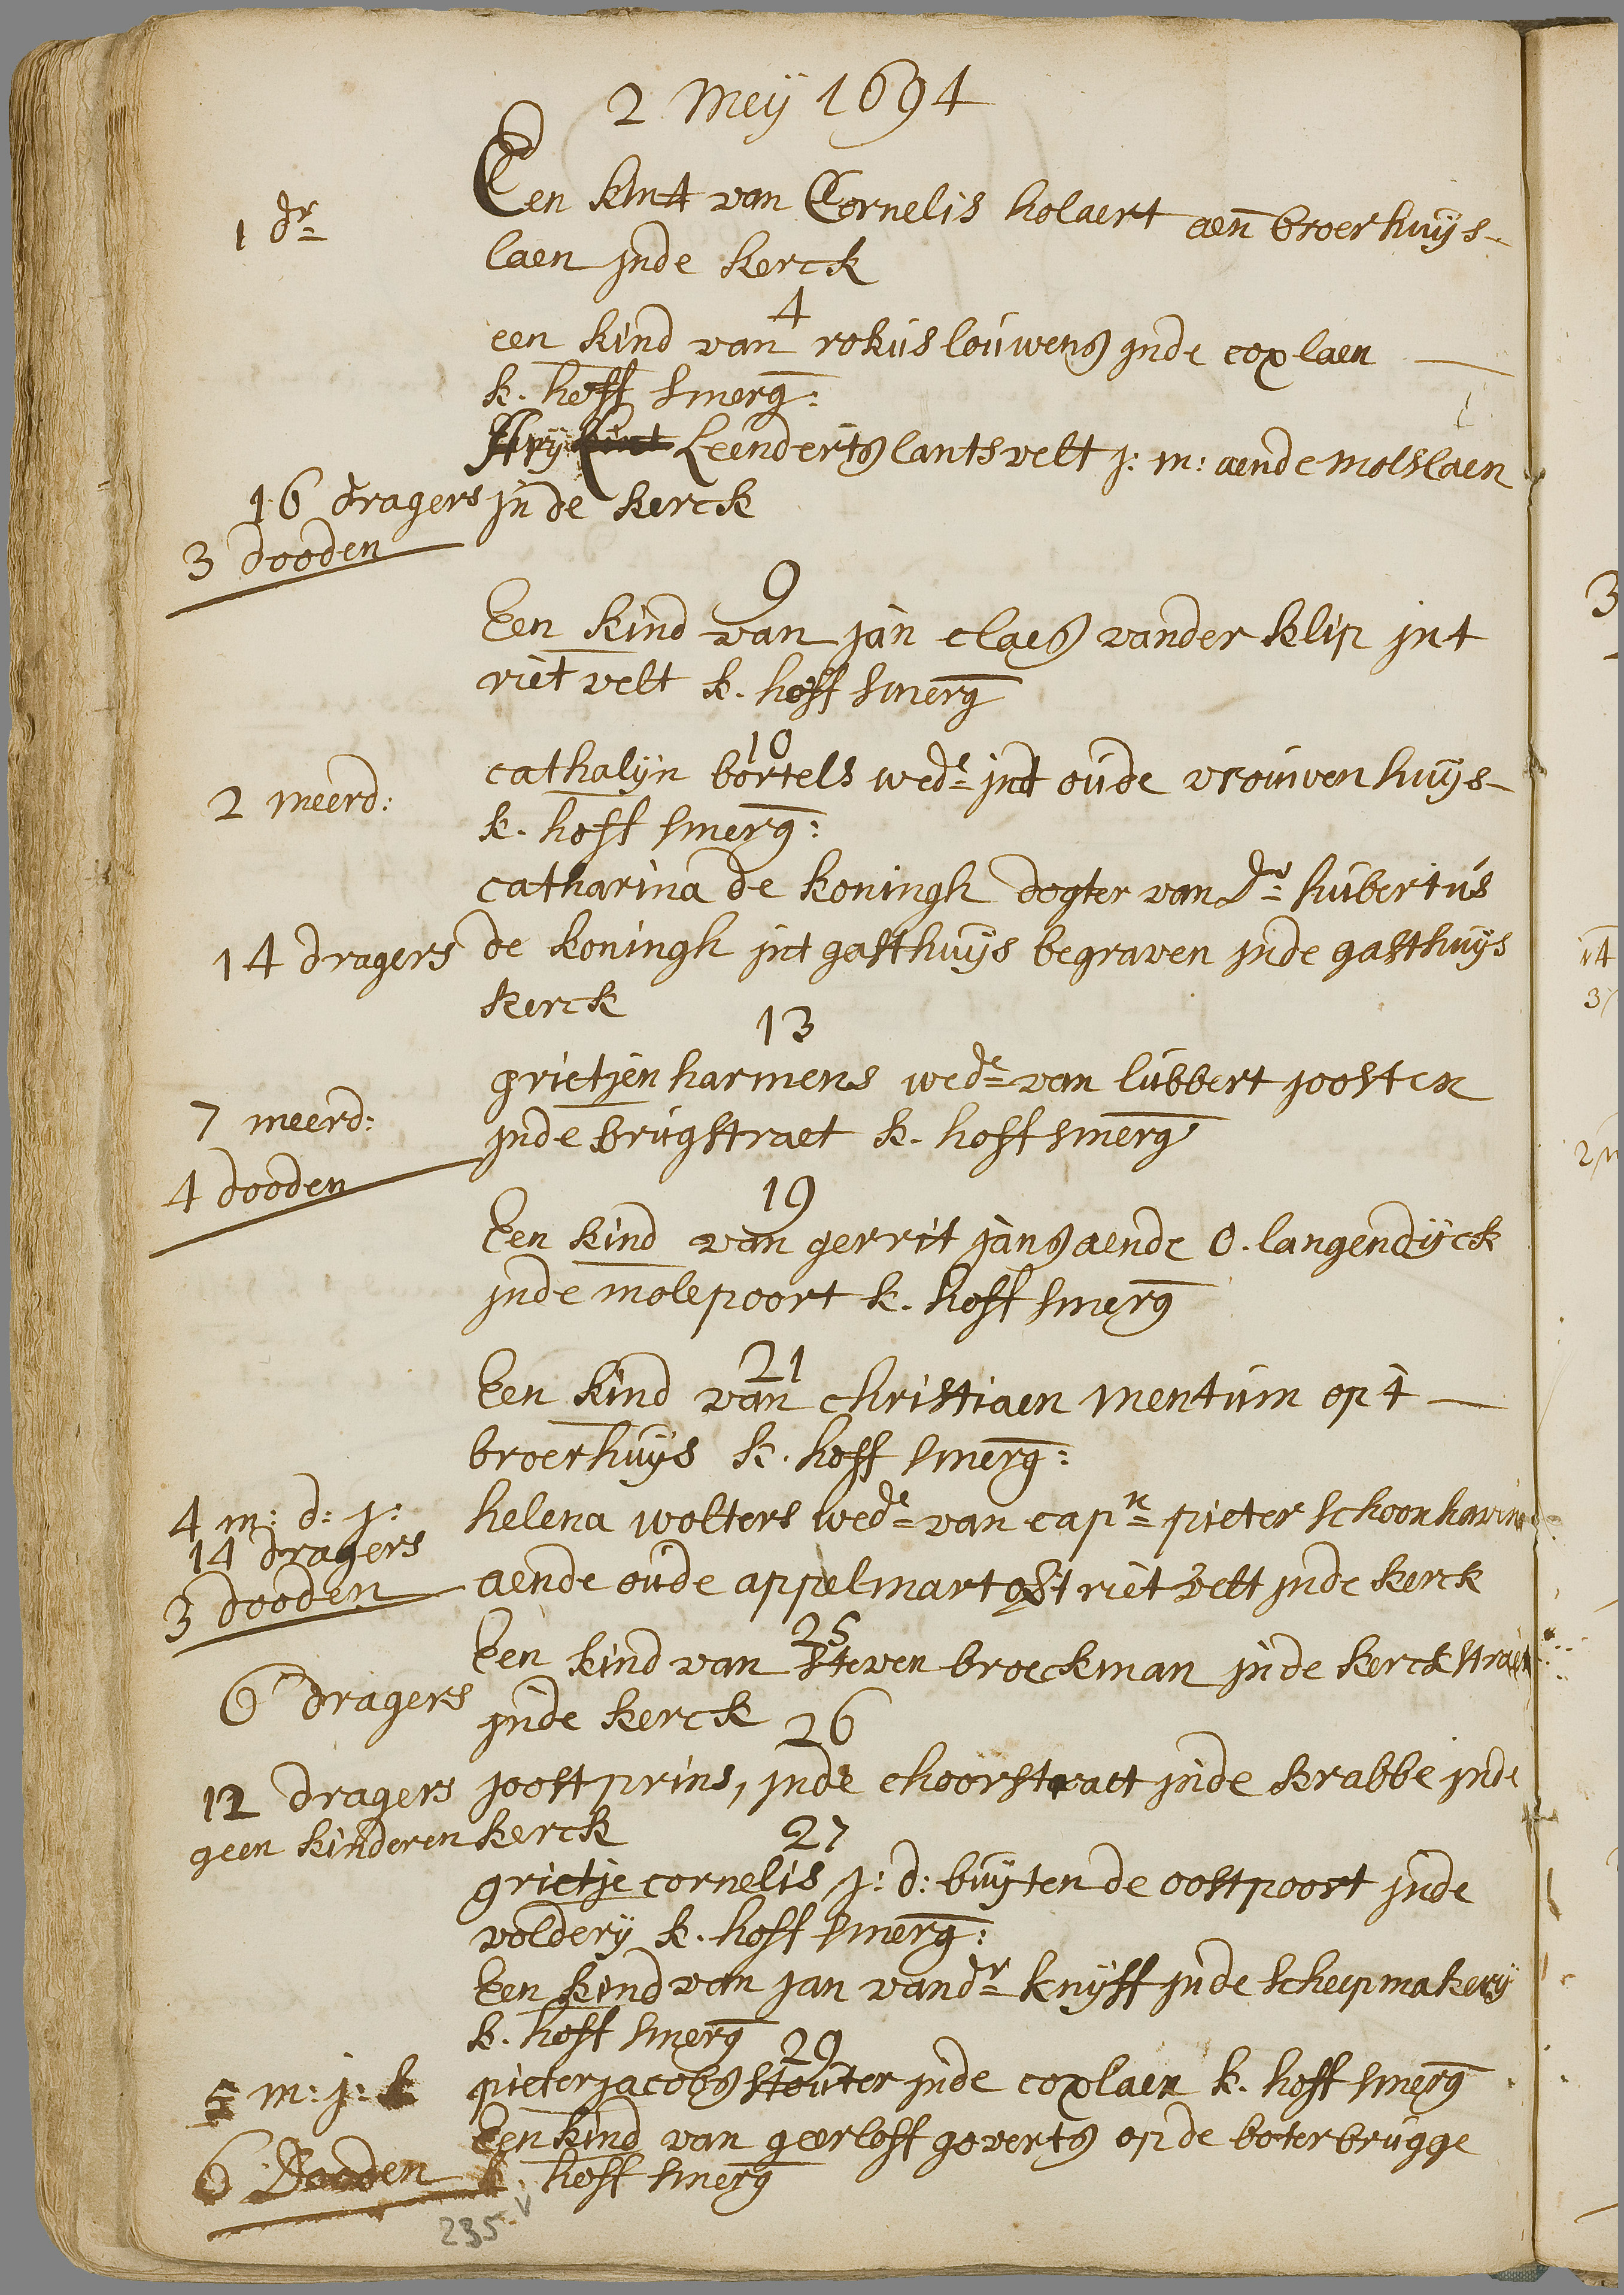 2 Meÿ 1694
1 dr
Een kint van Cornelis holaert aen broerhuijs-
laen jnde kerck
4
een kind van rokus louwens jnde coxlaen
k. hoff smerg:
Arÿ kint Leenderts lantsvelt j: m: aende molslaen
16 dragers jn de kerck
3 dooden
9
Een kind van jan claes vander klip jnt
rietvelt k. hoff smerg
10
cathalÿn bortels wede jnt oude vrouwenhuÿs-
2 meerd:
k. hoff smerg:
catharina de koningh dogter van Dr hubertus
14 dragers de koningh jnt gasthuÿs begraven jnde gasthuÿs
kerck
13
grietjen harmens wede van lubbert joosten
7 meerd:
jnde brugstraet k. hoff smerg
4 dooden
19
Een kind van gerrit jans aende O. langendÿck
jnde molepoort k. hoff smerg
21
Een kind van christiaen mentum opt
broerhuÿs k. hoff smerg:
4 m: d: j:
helena wolters wede van capn pieter schoonhavin
14 dragers
aende oude appelmart opt rietvelt jnde kerck
3 dooden
25
Een kind van steven broeckman jnde kerckstraet
6 dragers jnde kerck
26
12 dragers joost prins, jnde choorstraet jnde krabbe jnde
geen kinderen kerck
27
grietje cornelis j: d: buÿten de oostpoort jnde
volderÿ k. hoff smerg:
Een kind van jan vandr knÿff jnde scheepmakerÿ
k. hoff smerg
29
5 m: j: k
pieter jacobs stouter jnde coxlaen k. hoff smerg
Een kind van geerloff goverts op de boterbrugge
6 Dooden k. hoff smerg
235 v